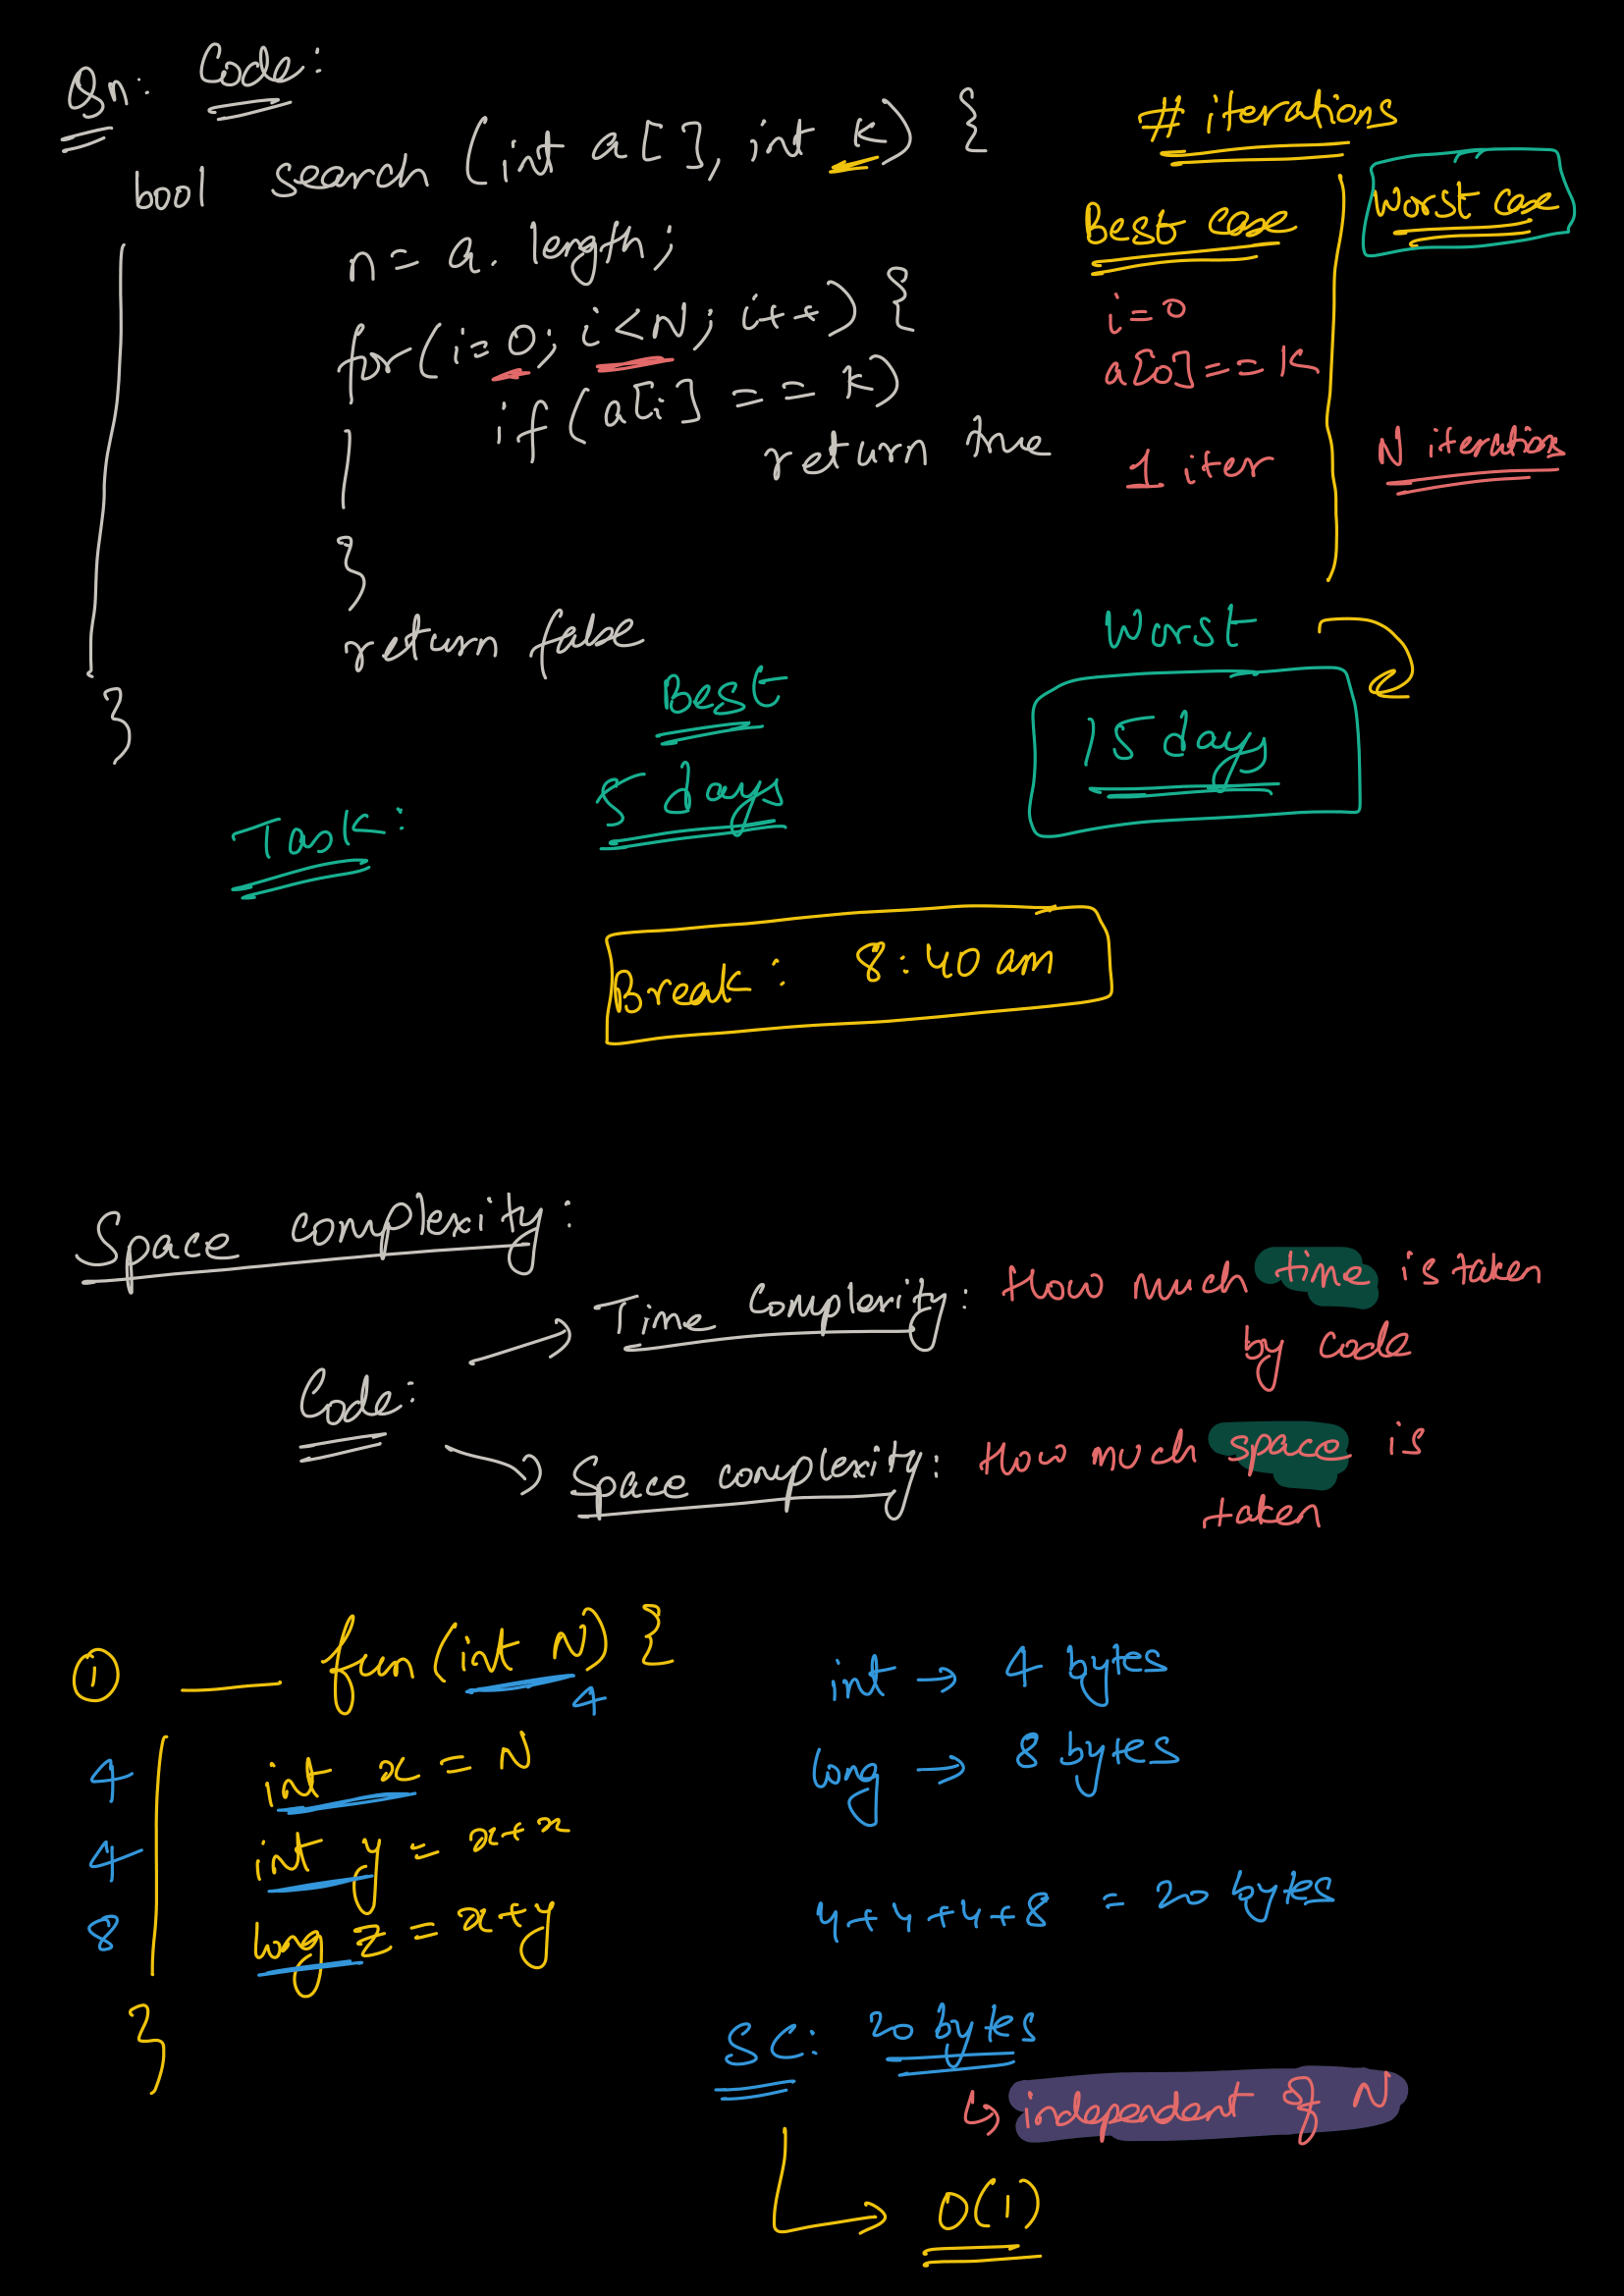 Qn: Code:
bool search (int a[], int K) {
n = a. length;
for(i=0; i<N; i++) {
if(a[i] == K)
return true
}
return false
}
# iterations
Best case
i=0
a[0]==K
1 iter
Worst case
N iterations
Task:
Best
5 days
Worst
15 days
Break: 8:40 am
Space complexity:
Code:
→ Time complexity: How much time is taken
by code
→ Space complexity: How much space is
taken
① — fun(int N) {
4
4 int x = N
4 int y = x+x
8 long z = x+y
}
int → 4 bytes
long → 8 bytes
4+4+4+8 = 20 bytes
SC: 20 bytes
↳ independent of N
→ O(1)